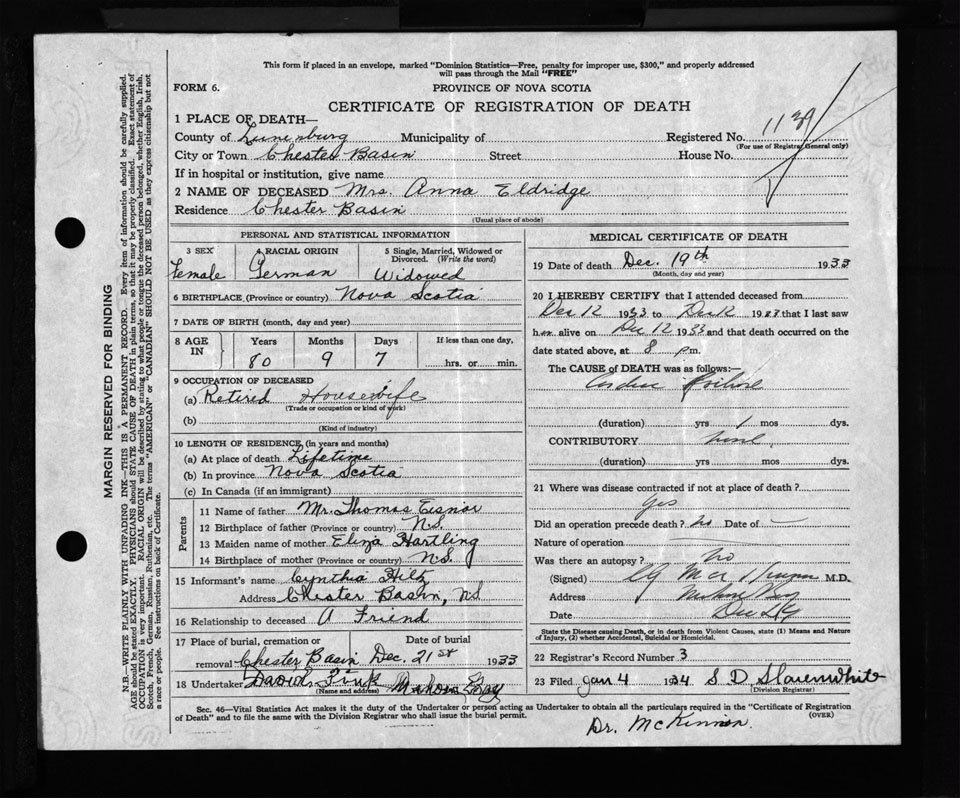 This form if placed in an envelope, marked "Dominion Statistics—Free, penalty for improper use, $300," and properly addressed
will pass through the Mail "FREE"
FORM 6.
PROVINCE OF NOVA SCOTIA
CERTIFICATE OF REGISTRATION OF DEATH
1 PLACE OF DEATH—
County of Lunenburg Municipality of Registered No. 1139
(For use of Registrar General only)
City or Town Chester Basin Street House No.
If in hospital or institution, give name
2 NAME OF DECEASED Mrs. Anna Eldridge
Residence Chester Basin
(Usual place of abode)
PERSONAL AND STATISTICAL INFORMATION
3 SEX 4 RACIAL ORIGIN 5 Single, Married, Widowed or
Divorced. (Write the word)
Female German Widowed
6 BIRTHPLACE (Province or country) Nova Scotia
7 DATE OF BIRTH (month, day and year)
8 AGE IN Years Months Days If less than one day,
80 9 7 hrs. or min.
9 OCCUPATION OF DECEASED
(a) Retired Housewife
(Trade or occupation or kind of work)
(b)
(Kind of industry)
10 LENGTH OF RESIDENCE (in years and months)
(a) At place of death Lifetime
(b) In province Nova Scotia
(c) In Canada (if an immigrant)
Parents
11 Name of father Mr. Thomas Eisnor
12 Birthplace of father (Province or country) N.S.
13 Maiden name of mother Eliza Hartling
14 Birthplace of mother (Province or country) N.S.
15 Informant's name Cynthia Hilz
Address Chester Basin, N.S
16 Relationship to deceased A Friend
17 Place of burial, cremation or Date of burial
removal Chester Basin Dec. 21st 1933
18 Undertaker David Fink Mahone Bay
(Name and address)
MEDICAL CERTIFICATE OF DEATH
19 Date of death Dec. 19th 1933
(Month, day and year)
20 I HEREBY CERTIFY that I attended deceased from
Dec 12 1933 to Dec 12 19 that I last saw
her alive on Dec 12 1933 and that death occurred on
date stated above, at 8 p.m.
The CAUSE of DEATH was as follows:—
Cardiac Failure
(duration) yrs 1 mos dys.
CONTRIBUTORY none
(duration) yrs. mos. dys.
21 Where was disease contracted if not at place of death?
Yes
Did an operation precede death? no Date of —
Nature of operation
Was there an autopsy? No
(Signed) M.D.
Address Mahone Bay
Date Dec
State the Disease causing Death, or in death from Violent Causes, state (1) Means and Nature
of Injury, (2) whether Accidental, Suicidal or Homicidal.
22 Registrar's Record Number 3
23 Filed Jan 4 1934 S D Slauenwhite
(Division Registrar)
Sec. 46—Vital Statistics Act makes it the duty of the Undertaker or person acting as Undertaker to obtain all the particulars required in the "Certificate of Registration
of Death" and to file the same with the Division Registrar who shall issue the burial permit. (OVER)
Dr. McKinnon.
MARGIN RESERVED FOR BINDING
N.B.—WRITE PLAINLY WITH UNFADING INK—THIS IS A PERMANENT RECORD. Every item of information should be carefully supplied.
AGE should be stated EXACTLY. PHYSICIANS should STATE CAUSE OF DEATH in plain terms, so that it may be properly classified. Exact statement of
OCCUPATION is very important. RACIAL ORIGIN will be described by stating to what people or tongue the deceased person belonged, whether English, Irish,
Scotch, French, German, Russian, Ruthenian, etc. The terms "AMERICAN" or "CANADIAN" SHOULD NOT BE USED as they express citizenship but not
a race or people. See instructions on back of Certificate.